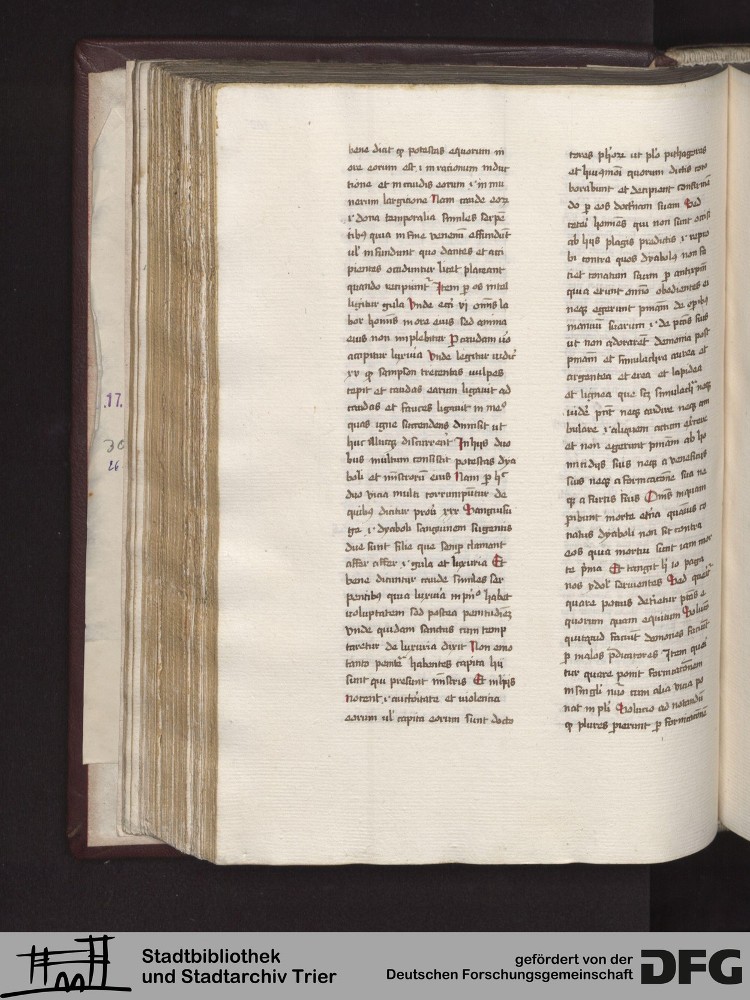 bene dicit qꝫ potestas equorum in
ore eorum est .i. in racionum indur
tione et in caudis eorum .i. in mu
nerum largitione Nam caude eoꝝ
.i. dona temporalia similes serpē
tibꝰ quia in fine venenū effundūt
ul' infundunt quo dantes et acci
pientes occiduntur licet placeant
quando recipiunt Item ꝑ os intel
ligitur gula Vnde ecci vi omīs la
bor homīs in ore eius sed anima
eius non implebitur Ꝑ caudam uo
accipitur luxuria Vnde legitur iudic
xv qꝫ sampson trecentas vulpes
cepit et caudas earum ligauit ad
caudas et faces ligauit in meº
quas igne succendens dimisit ut
huc illucqꝫ discurrerēt In hijs duo
bus multum consistit potestas dya
boli et mīstrorū eius Nam ꝑ hͨ
duo vicia multi corrumpūtur de
quibꝰ dicitur prou xxx Sanguisu
ge .i. dyaboli sanguinem sugentis
due sunt filie que semꝑ clamant
affer affer .i. gula et luxuria Et
bene dicuntur caude similes ser
pentibꝰ quia luxuria in pͥnº habet
voluptatem sed postea penitudinē
Vnde quidam sanctus cum temp
taretur de luxuria dixit Non emo
tanto penitē habentes capita hij
sunt qui presunt mīstris Et in hijs
nocent .i. auctoritate et violentia
eorum ul' capita eorum sunt docto
tores ph'oꝝ ut plº pithagoras
et hui9moī quorum dictis
et decipiunt
do ꝑ eos doctrinam suam Sed
ceteri homīes qui non sunt occisi
ab hijs plagis predictis .i.
bi contra quos dyabolus non fa
ciet conatum suum ꝑ antixpm̄
quia erunt omīo obedientes ei
neqꝫ egerunt pniam de opibꝰ
manuū suarum .i. de pctīs suis
ut non adorarēt demonia post
pniam et simulachra aurea et
argentea et erea et lapidea
et lignea que seȝ simulachͬ neqꝫ
uidē pnt neqꝫ audire neqꝫ am
bulare .i. aliquam actum exͨere
et non egerunt pniam ab ho
micidijs suis neqꝫ a veneficijs
suis neqꝫ a fornicacione sua ne
qꝫ a furtis suis Omīs inquam
pibunt morte etīa quauis co
natus dyaboli non sit contra
eos quia mortui sunt iam mor
te pͥma Et tangit hͥ io paga
nos ydol' seruientes Sed querͥ
quare potius dicatur ptās e
quorum quam equitum Solutio
quicquid faciūt demones faciūt
ꝑ malos p̄dicatores Item queri
tur quare ponit fornicacōnem
in singͤli nūo cum alia vicia po
nat in plͥ Solucio ad notandū
qꝫ plures pierunt ꝑ fornicacōnē
.17.
30
26
Stadtbibliothek
und Stadtarchiv Trier
gefördert von der
Deutschen Forschungsgemeinschaft
DFG